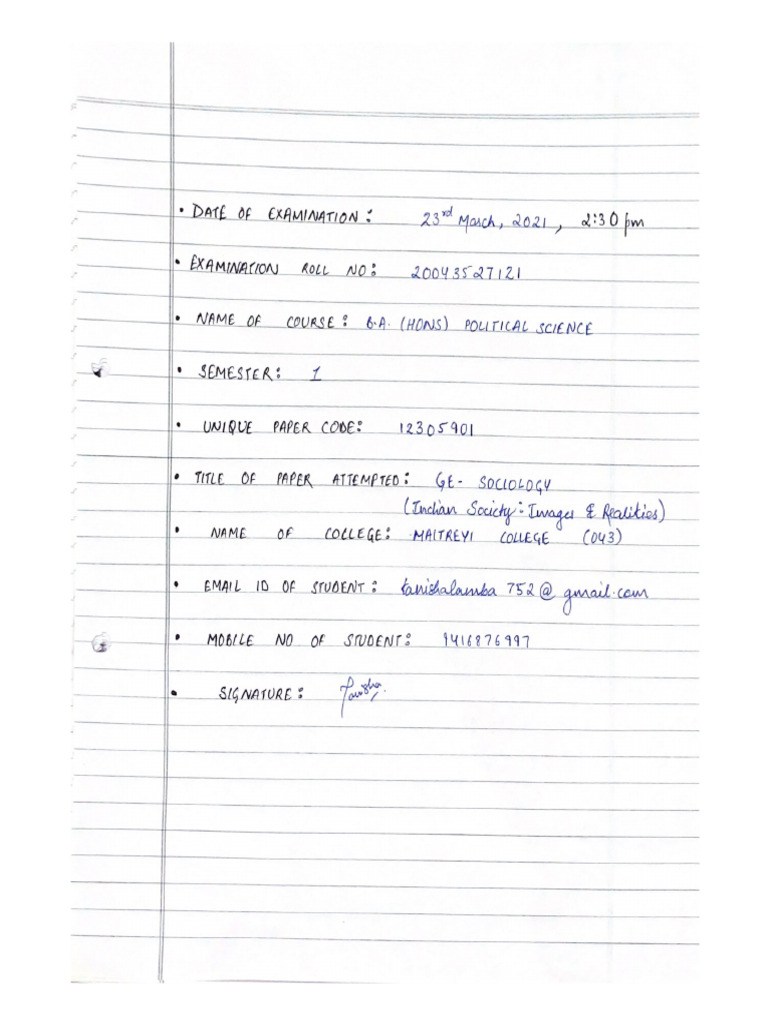 • DATE OF EXAMINATION: 23rd March, 2021, 2:30 pm
• EXAMINATION ROLL NO: 20043527121
• NAME OF COURSE: B.A. (HONS) POLITICAL SCIENCE
• SEMESTER: 1
• UNIQUE PAPER CODE: 12305901
• TITLE OF PAPER ATTEMPTED: GE- SOCIOLOGY
(Indian Society: Images & Realities)
• NAME OF COLLEGE: MAITREYI COLLEGE (043)
• EMAIL ID OF STUDENT: tanishalamba752@gmail.com
• MOBILE NO OF STUDENT: 9416876997
• SIGNATURE: Tanisha